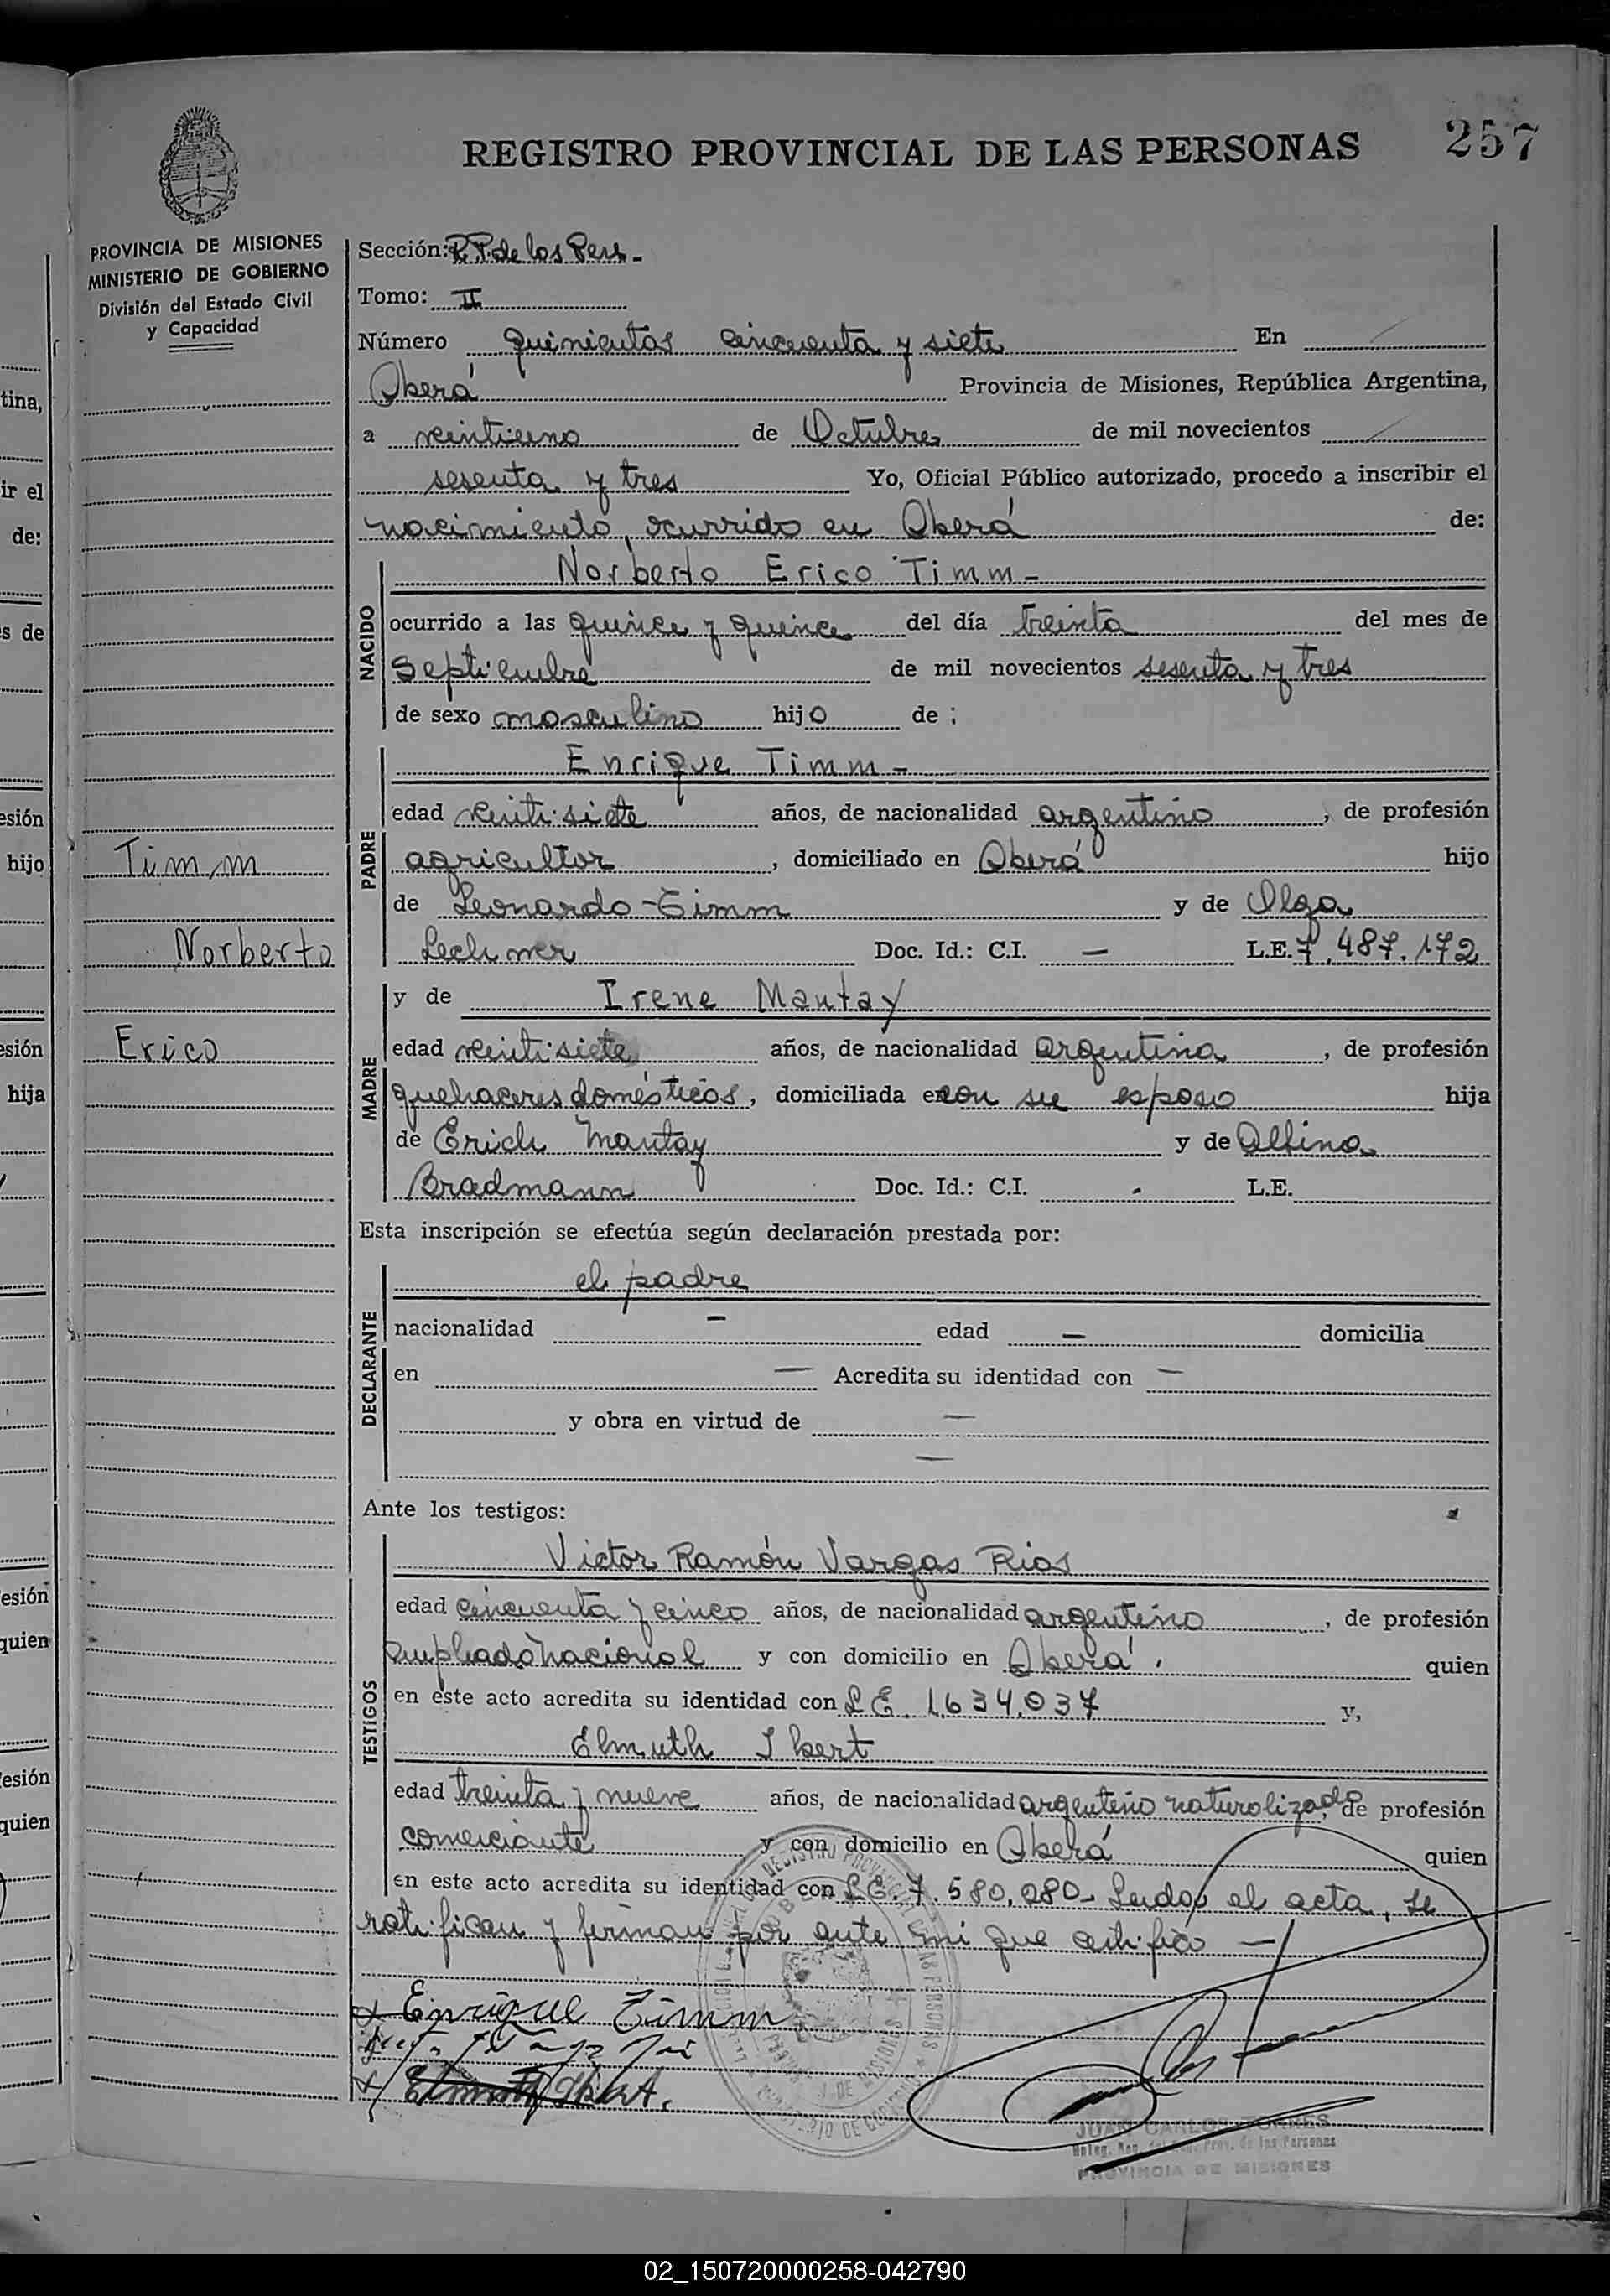 REGISTRO PROVINCIAL DE LAS PERSONAS 257
PROVINCIA DE MISIONES
MINISTERIO DE GOBIERNO
División del Estado Civil
y Capacidad
Timm
Norberto
Erico
Sección: R.P. de las Pers.-
Tomo: II
Número quinientos cincuenta y siete En
Oberá Provincia de Misiones, República Argentina,
a veintiuno de Octubre de mil novecientos
sesenta y tres Yo, Oficial Público autorizado, procedo a inscribir el
nacimiento, ocurrido en Oberá de:
NACIDO
Norberto Erico Timm-
ocurrido a las quince y quince del día treinta del mes de
Septiembre de mil novecientos sesenta y tres
de sexo masculino hijo de :
PADRE
Enrique Timm-
edad veintisiete años, de nacionalidad argentino, de profesión
agricultor, domiciliado en Oberá hijo
de Leonardo Timm y de Olga
Lechner Doc. Id.: C.I. — L.E. 7.487.172
MADRE
y de Irene Mantay
edad veintisiete años, de nacionalidad argentina, de profesión
quehaceres domésticos, domiciliada en con su esposo hija
de Erich Mantay y de Albina
Bradmann Doc. Id.: C.I. - L.E.
Esta inscripción se efectúa según declaración prestada por:
DECLARANTE
el padre
nacionalidad — edad — domicilia
en — Acredita su identidad con —
y obra en virtud de —
—
Ante los testigos:
TESTIGOS
Victor Ramón Vargas Rios
edad cincuenta y cinco años, de nacionalidad argentino, de profesión
empleado nacional y con domicilio en Oberá. quien
en este acto acredita su identidad con L.E. 1.634.037 y,
Elmuth Ibert
edad treinta y nueve años, de nacionalidad argentino naturalizado, de profesión
comerciante y con domicilio en Oberá quien
en este acto acredita su identidad con L.E. 7.580.080- Leida el acta, se
ratifican y firman por ante mi que certifico —
Enrique Timm
JUAN CARLOS TORRES
PROVINCIA DE MISIONES
02_150720000258-042790